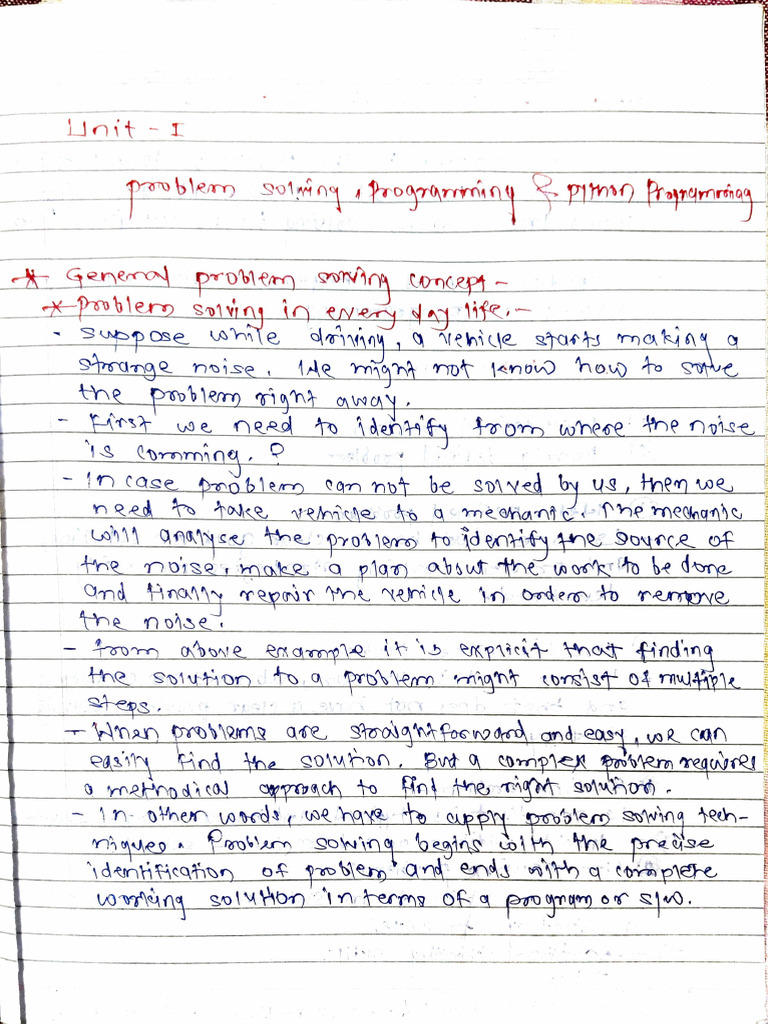 Unit - I
Problem solving, Programming & Python Programming
* General problem solving concept -
* Problem solving in every day life. -
- Suppose while driving, a vehicle starts making a
strange noise. We might not know how to solve
the problem right away.
- First we need to identify from where the noise
is comming. ?
- In case problem can not be solved by us, then we
need to take vehicle to a mechanic. The mechanic
will analyse the problem to identify the source of
the noise, make a plan about the work to be done
and finally repair the vehicle in order to remove
the noise.
- from above example it is explicit that finding
the solution to a problem might consist of multiple
steps.
- When problems are straightforward and easy, we can
easily find the solution. But a complex problem requires
a methodical approach to find the right solution.
- In other words, we have to apply problem solving tech-
niques. Problem solving begins with the precise
identification of problem and ends with a complete
working solution in terms of a program or s/w.